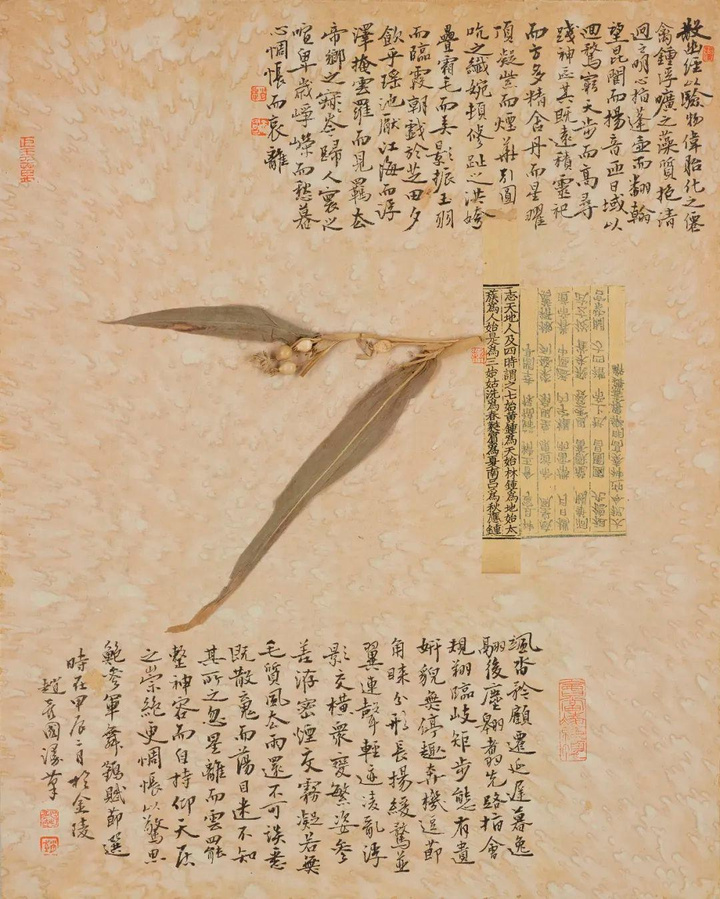 散幽經以驗物偉胎化之僊
禽鍾浮曠之藻質抱清
迥之明心指蓬壺而翻翰
望昆閬而揚音帀日域以
迴騖窮天步而高尋
踐神區其既遠積靈祀
而方多精含丹而星曜
頂凝紫而煙華引圓
吭之纖婉頓修趾之洪姱
疊霜毛而弄影振玉羽
而臨霞朝戲於芝田夕
飲乎瑤池厭江海而游
澤掩雲羅而見羈去
帝鄉之寂岑歸人寰之
喧卑歲崢嶸而愁暮
心惆悵而哀離
志天地人及四時謂之七始黃鍾為天始林鍾為地始太
簇為人始是為三始姑洗為春蕤賓為夏南呂為秋應鍾
颯沓矜顧遷延遲暮逸
翮後塵翱翥先路指會
規翔臨岐矩步態有遺
妍貌無停趣奔機逗節
角睞分形長揚緩騖並
翼連聲輕迹凌亂浮
影交橫眾變繁姿參
差洊密煙交霧凝若無
毛質風去雨還不可談悉
既散魂而蕩目迷不知
其所之忽星離而雲罷
整神容而自持仰天居
之崇絕更惆悵以驚思
鮑參軍舞鶴賦節選
時在甲辰二月於金陵
趙彥國漫草